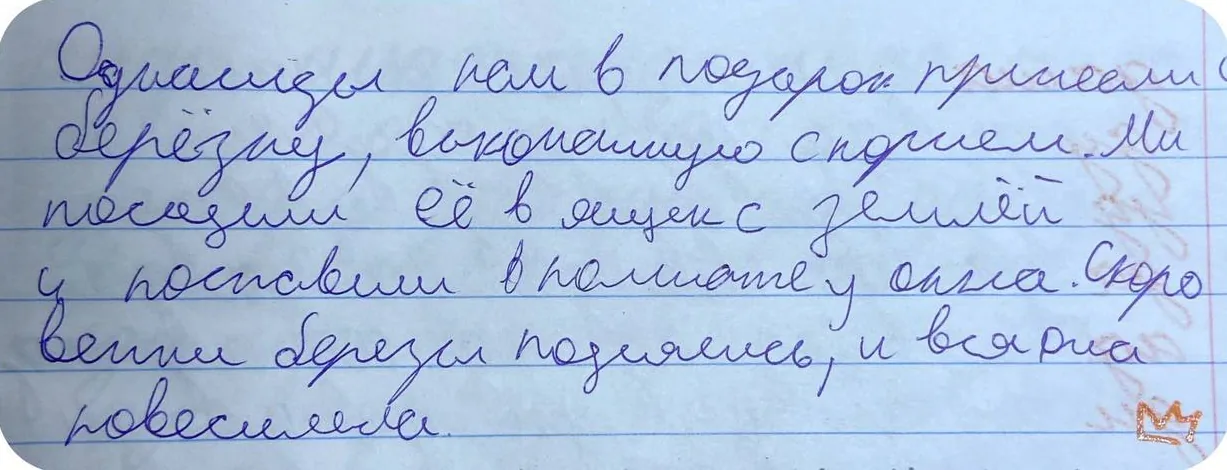 Однажды нам в подарок принесли
берёзку, выкопанную с корнем. Ми
посадили её в ящик с землёй
и поставили в комнате у окна. Скоро
ветки березы поднялись, и вся она
повеселела.